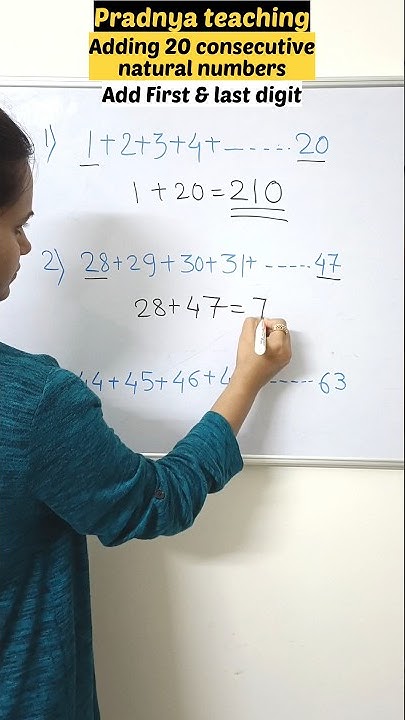 Pradnya teaching
Adding 20 consecutive
natural numbers
Add First & last digit
1) 1+2+3+4+ ------ 20
1+20=210
2) 28+29+30+31+ ----- 47
28+47=7
44+45+46+4 ------ 63